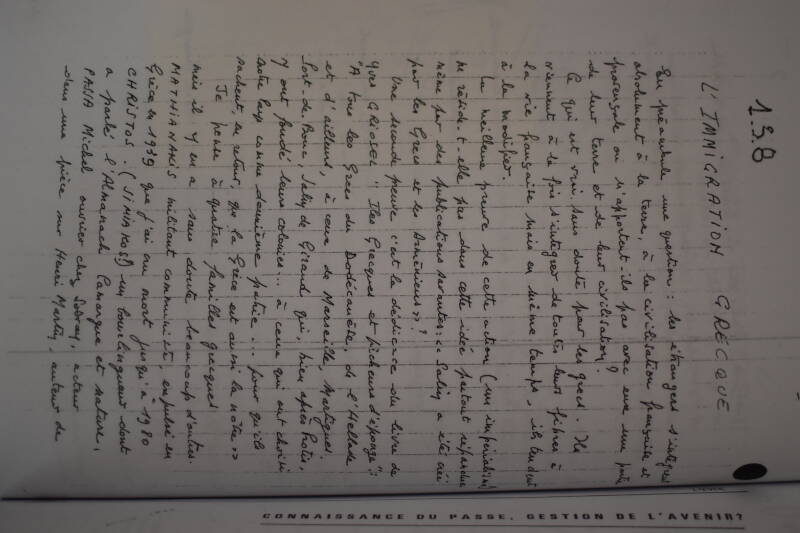 1.3.8
L'IMMIGRATION GRECQUE
En préambule une question : les étrangers s'intègrent
absolument à la terre, à la civilisation française et
provençale ou n'apportent-ils pas avec eux une partie
de leur terre et de leur civilisation?
Ce qui est vrai sans doute pour les grecs. Ils
viennent à la fois s'intégrer de toutes leurs fibres à
la vie française mais en même temps, ils tendent
à la modifier.
La meilleure preuve de cette action (un impérialisme)
ne réside-t-elle pas dans cette idée partout répandue
même par des publications savantes: << Salin a été créé
par les Grecs et les Arméniens >>?
Une seconde preuve c'est la dédicace du livre de
Yves GRIOSEL "Iles Grecques et pêcheurs d'éponge":
"A tous les Grecs du Dodécanèse, de l'Hellade
et d'ailleurs, à ceux de Marseille, Martigues,
Port-de-Bouc, Salin de Giraud qui, bien après Protis,
y ont fondé leurs colonies... à ceux qui ont choisi
notre pays comme deuxième patrie... pour qu'ils
sachent, en retour, que la Grèce est aussi la nôtre >>
Je pense à quatre familles grecques
mais il y en a sans doute beaucoup d'autres.
MATHIANAKIS militant communiste, expulsé en
Grèce en 1939 que j'ai cru mort jusqu'à 1980
CHRISTOS (SIMIKOS?) un bourlingueur dont
a parlé l'Almanach Camargue et nature,
PASSA Michel ouvrier chez Solvay, acteur
dans une pièce sur Henri Martin, auteur de
CONNAISSANCE DU PASSE, GESTION DE L'AVENIR?